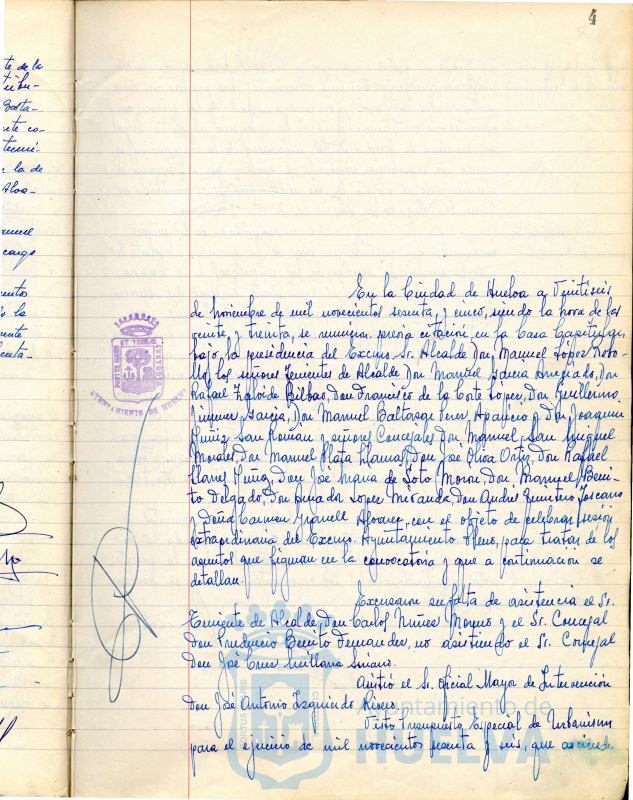 4
te de la
ente co-
e la de
cargo
o la
En la Ciudad de Huelva a Veintiseis
de noviembre de mil novecientos sesenta y cinco, siendo la hora de las
veinte y treinta, se reunieron previa citación, en la Casa Capitular
bajo la presidencia del Excmo. Sr. Alcalde Don Manuel López Rebo-
llo, los señores Tenientes de Alcalde Don Manuel García Don
Rafael de Bilbao, Don Francisco de la Corte López, Don Guillermo
Jimenez García, Don Manuel Baltasar Perez Aparicio y Don Joaquin
Muñiz San Román y señores Concejales Don Manuel San Miguel
Morales, Don Manuel Plata Llamas, Don José Oliva Ortiz, Don Rafael
Llanes Don José de Soto Moron, Don Manuel Beni-
to Delgado, Don Amador Lopez Miranda, Don Andrés Quintero Toscano
y Doña Carmen Alvarez, con el objeto de celebrar sesión
extraordinaria del Excmo. Ayuntamiento Pleno, para tratar de los
asuntos que figuran en la convocatoria y que a continuación se
detallan.
Excusaron su falta de asistencia el Sr.
Teniente de Alcalde, Don Carlos Núñez Moreno y el Sr. Concejal
Don Prudencio Benito Fernandez, no asistiendo el Sr. Concejal
Don José Cruz Orellana
Asistió el Sr. Oficial Mayor de Intervención
Don José Antonio Izquierdo Rivero.
Visto Presupuesto Especial de Urbanismo
para el ejercicio de mil novecientos sesenta y seis, que asciende
AYUNTAMIENTO DE HUELVA
Ayuntamiento de
HUELVA